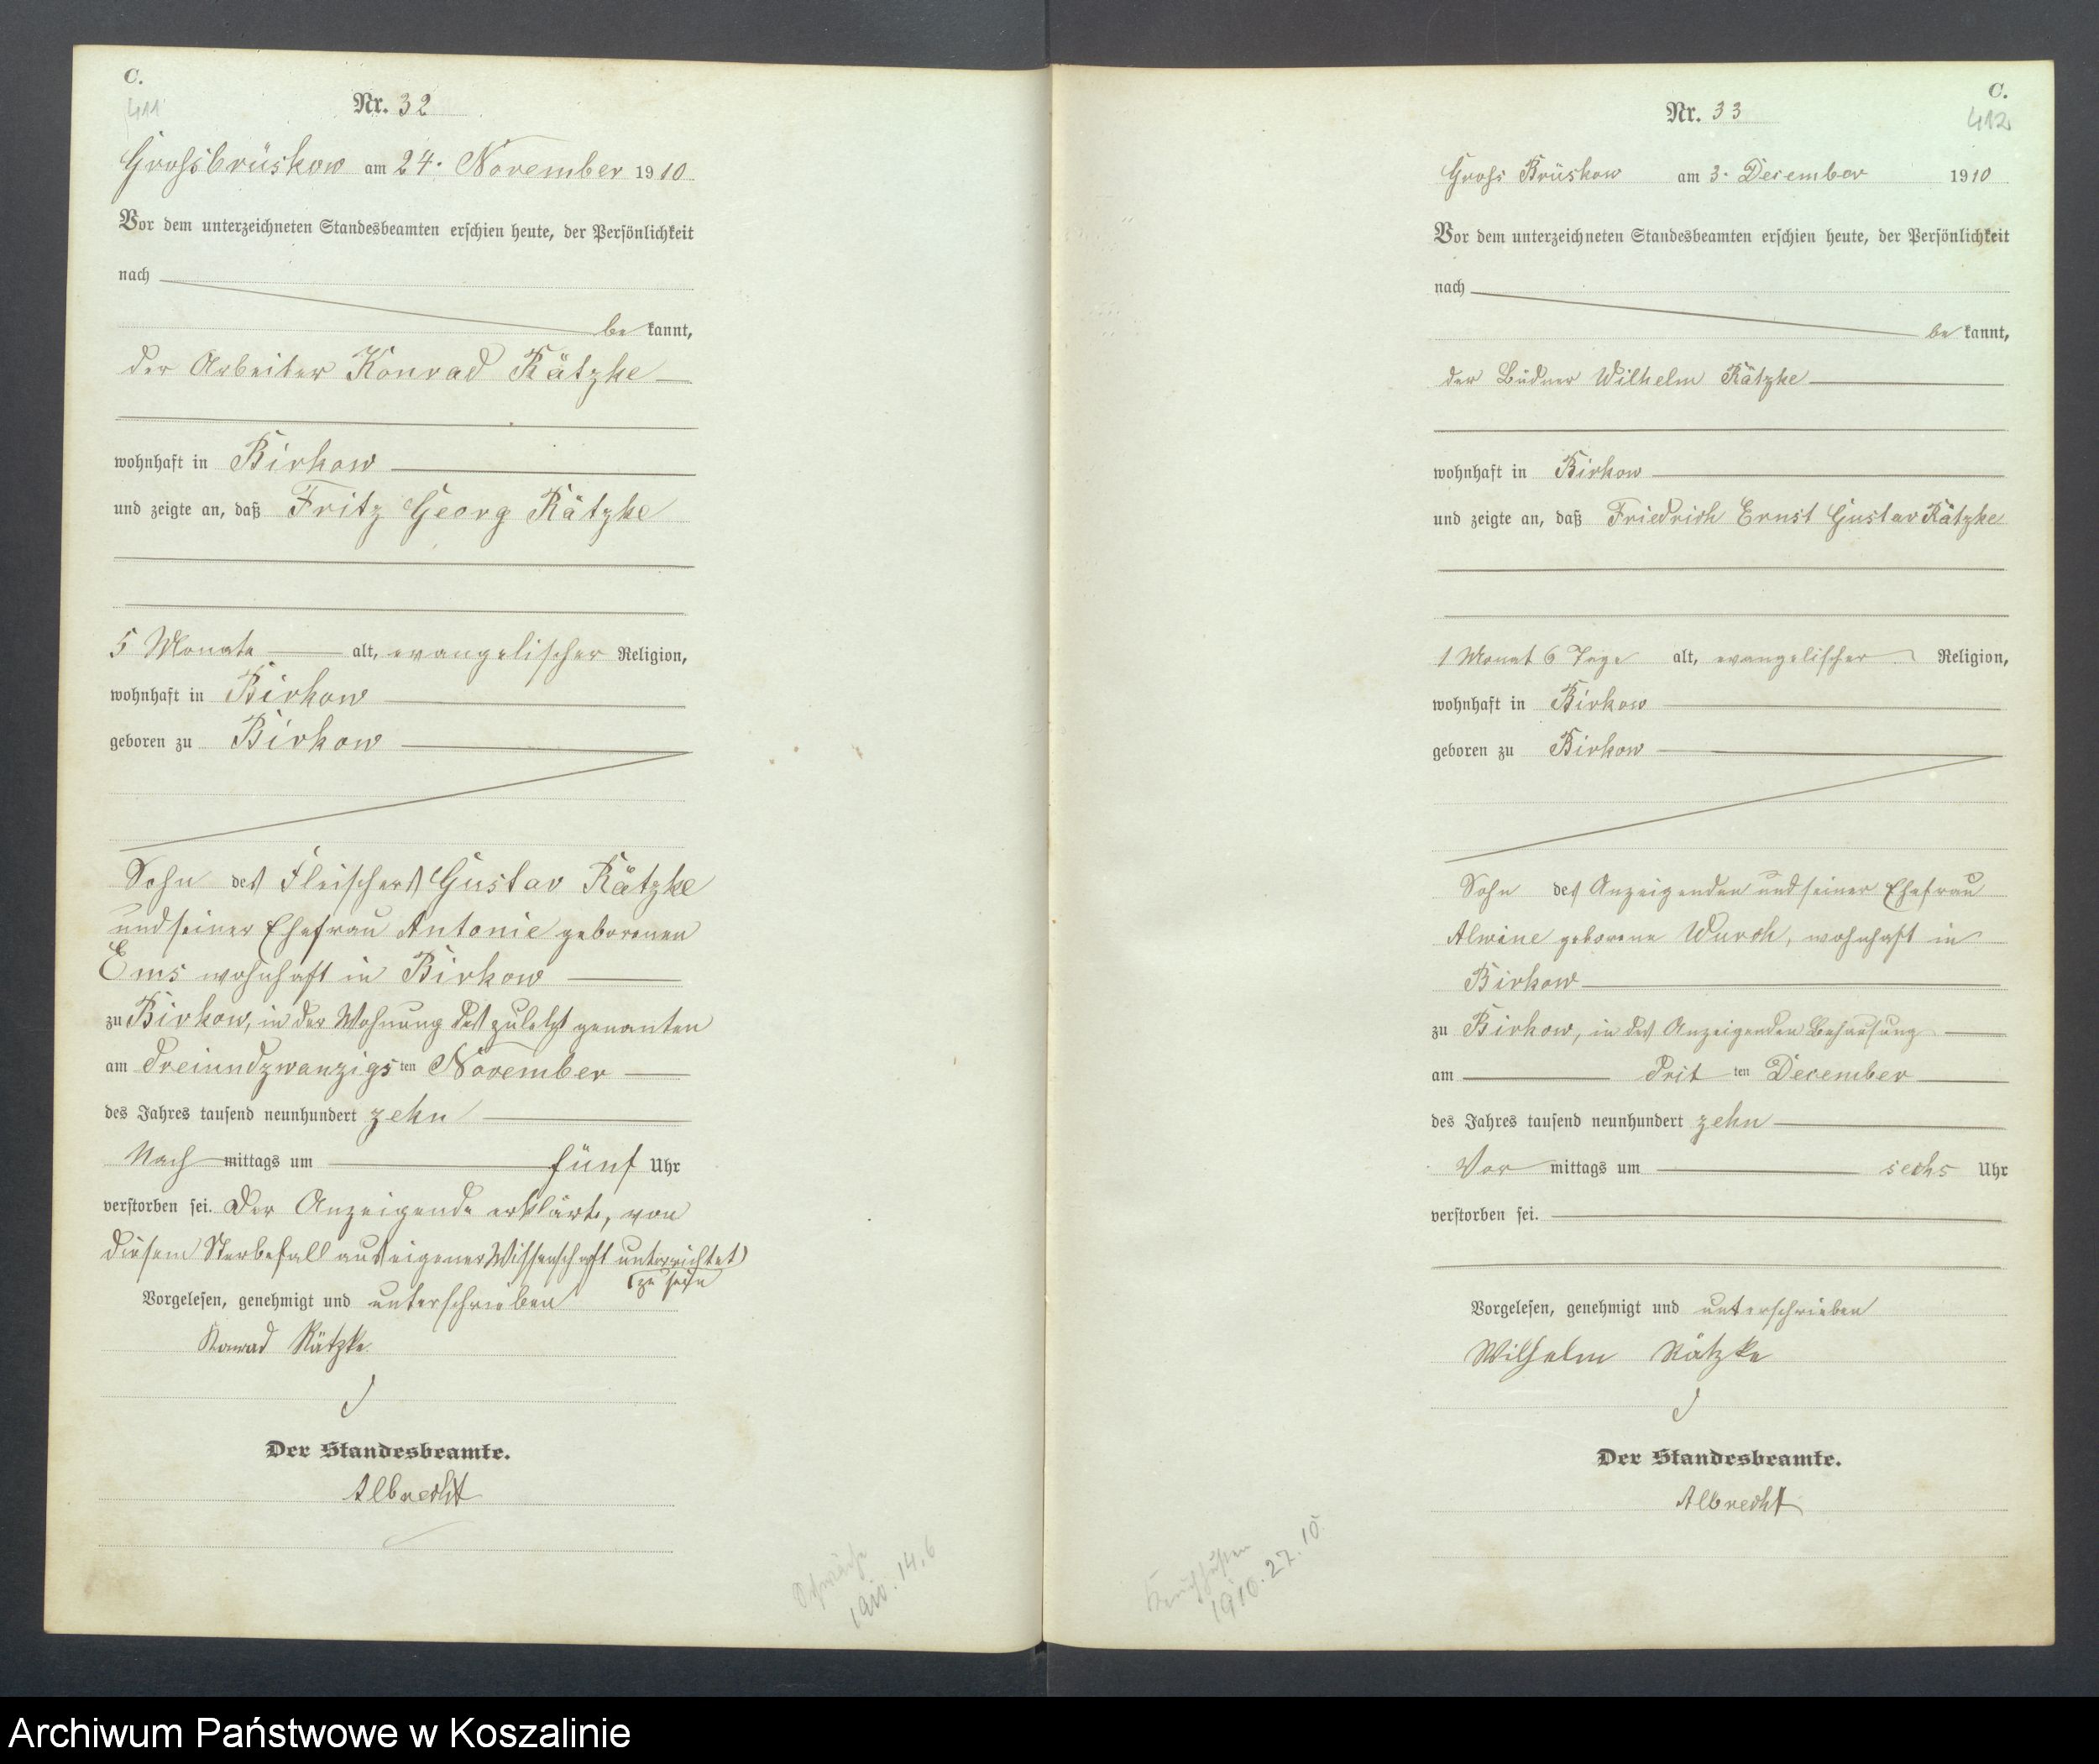 C.
411
Nr. 32
Grossbrüskow am 24. November 1910
Vor dem unterzeichneten Standesbeamten erschien heute, der Persönlichkeit
nach
be kannt,
der Arbeiter Konrad Rätzke
wohnhaft in Birkow
und zeigte an, daß Fritz Georg Rätzke
5 Monate alt, evangelischer Religion,
wohnhaft in Birkow
geboren zu Birkow
Sohn des Fleischers Gustav Rätzke
und seiner Ehefrau Antonie geborenen
Ems wohnhaft in Birkow
zu Birkow, in der Wohnung des zuletzt genanten
am dreiundzwanzigsten November
des Jahres tausend neunhundert zehn
Nach mittags um fünf Uhr
verstorben sei. Der Anzeigende erklärte, von
diesem Sterbefall aus eigener Wissenschaft unterrichtet
zu sein
Vorgelesen, genehmigt und unterschrieben
Konrad Rätzke
Der Standesbeamte.
Albrecht
1910. 14. 6
C.
412
Nr. 33
Gross Brüskow am 3. December 1910
Vor dem unterzeichneten Standesbeamten erschien heute, der Persönlichkeit
nach
be kannt,
der Büdner Wilhelm Rätzke
wohnhaft in Birkow
und zeigte an, daß Friedrich Ernst Gustav Rätzke
1 Monat 6 Tage alt, evangelischer Religion,
wohnhaft in Birkow
geboren zu Birkow
Sohn des Anzeigenden und seiner Ehefrau
Alwine geborene Wurch, wohnhaft in
Birkow
zu Birkow, in des Anzeigenden Behausung
am dritten December
des Jahres tausend neunhundert zehn
Vor mittags um sechs Uhr
verstorben sei.
Vorgelesen, genehmigt und unterschrieben
Wilhelm Rätzke
Der Standesbeamte.
Albrecht
1910. 27. 10.
Archiwum Państwowe w Koszalinie